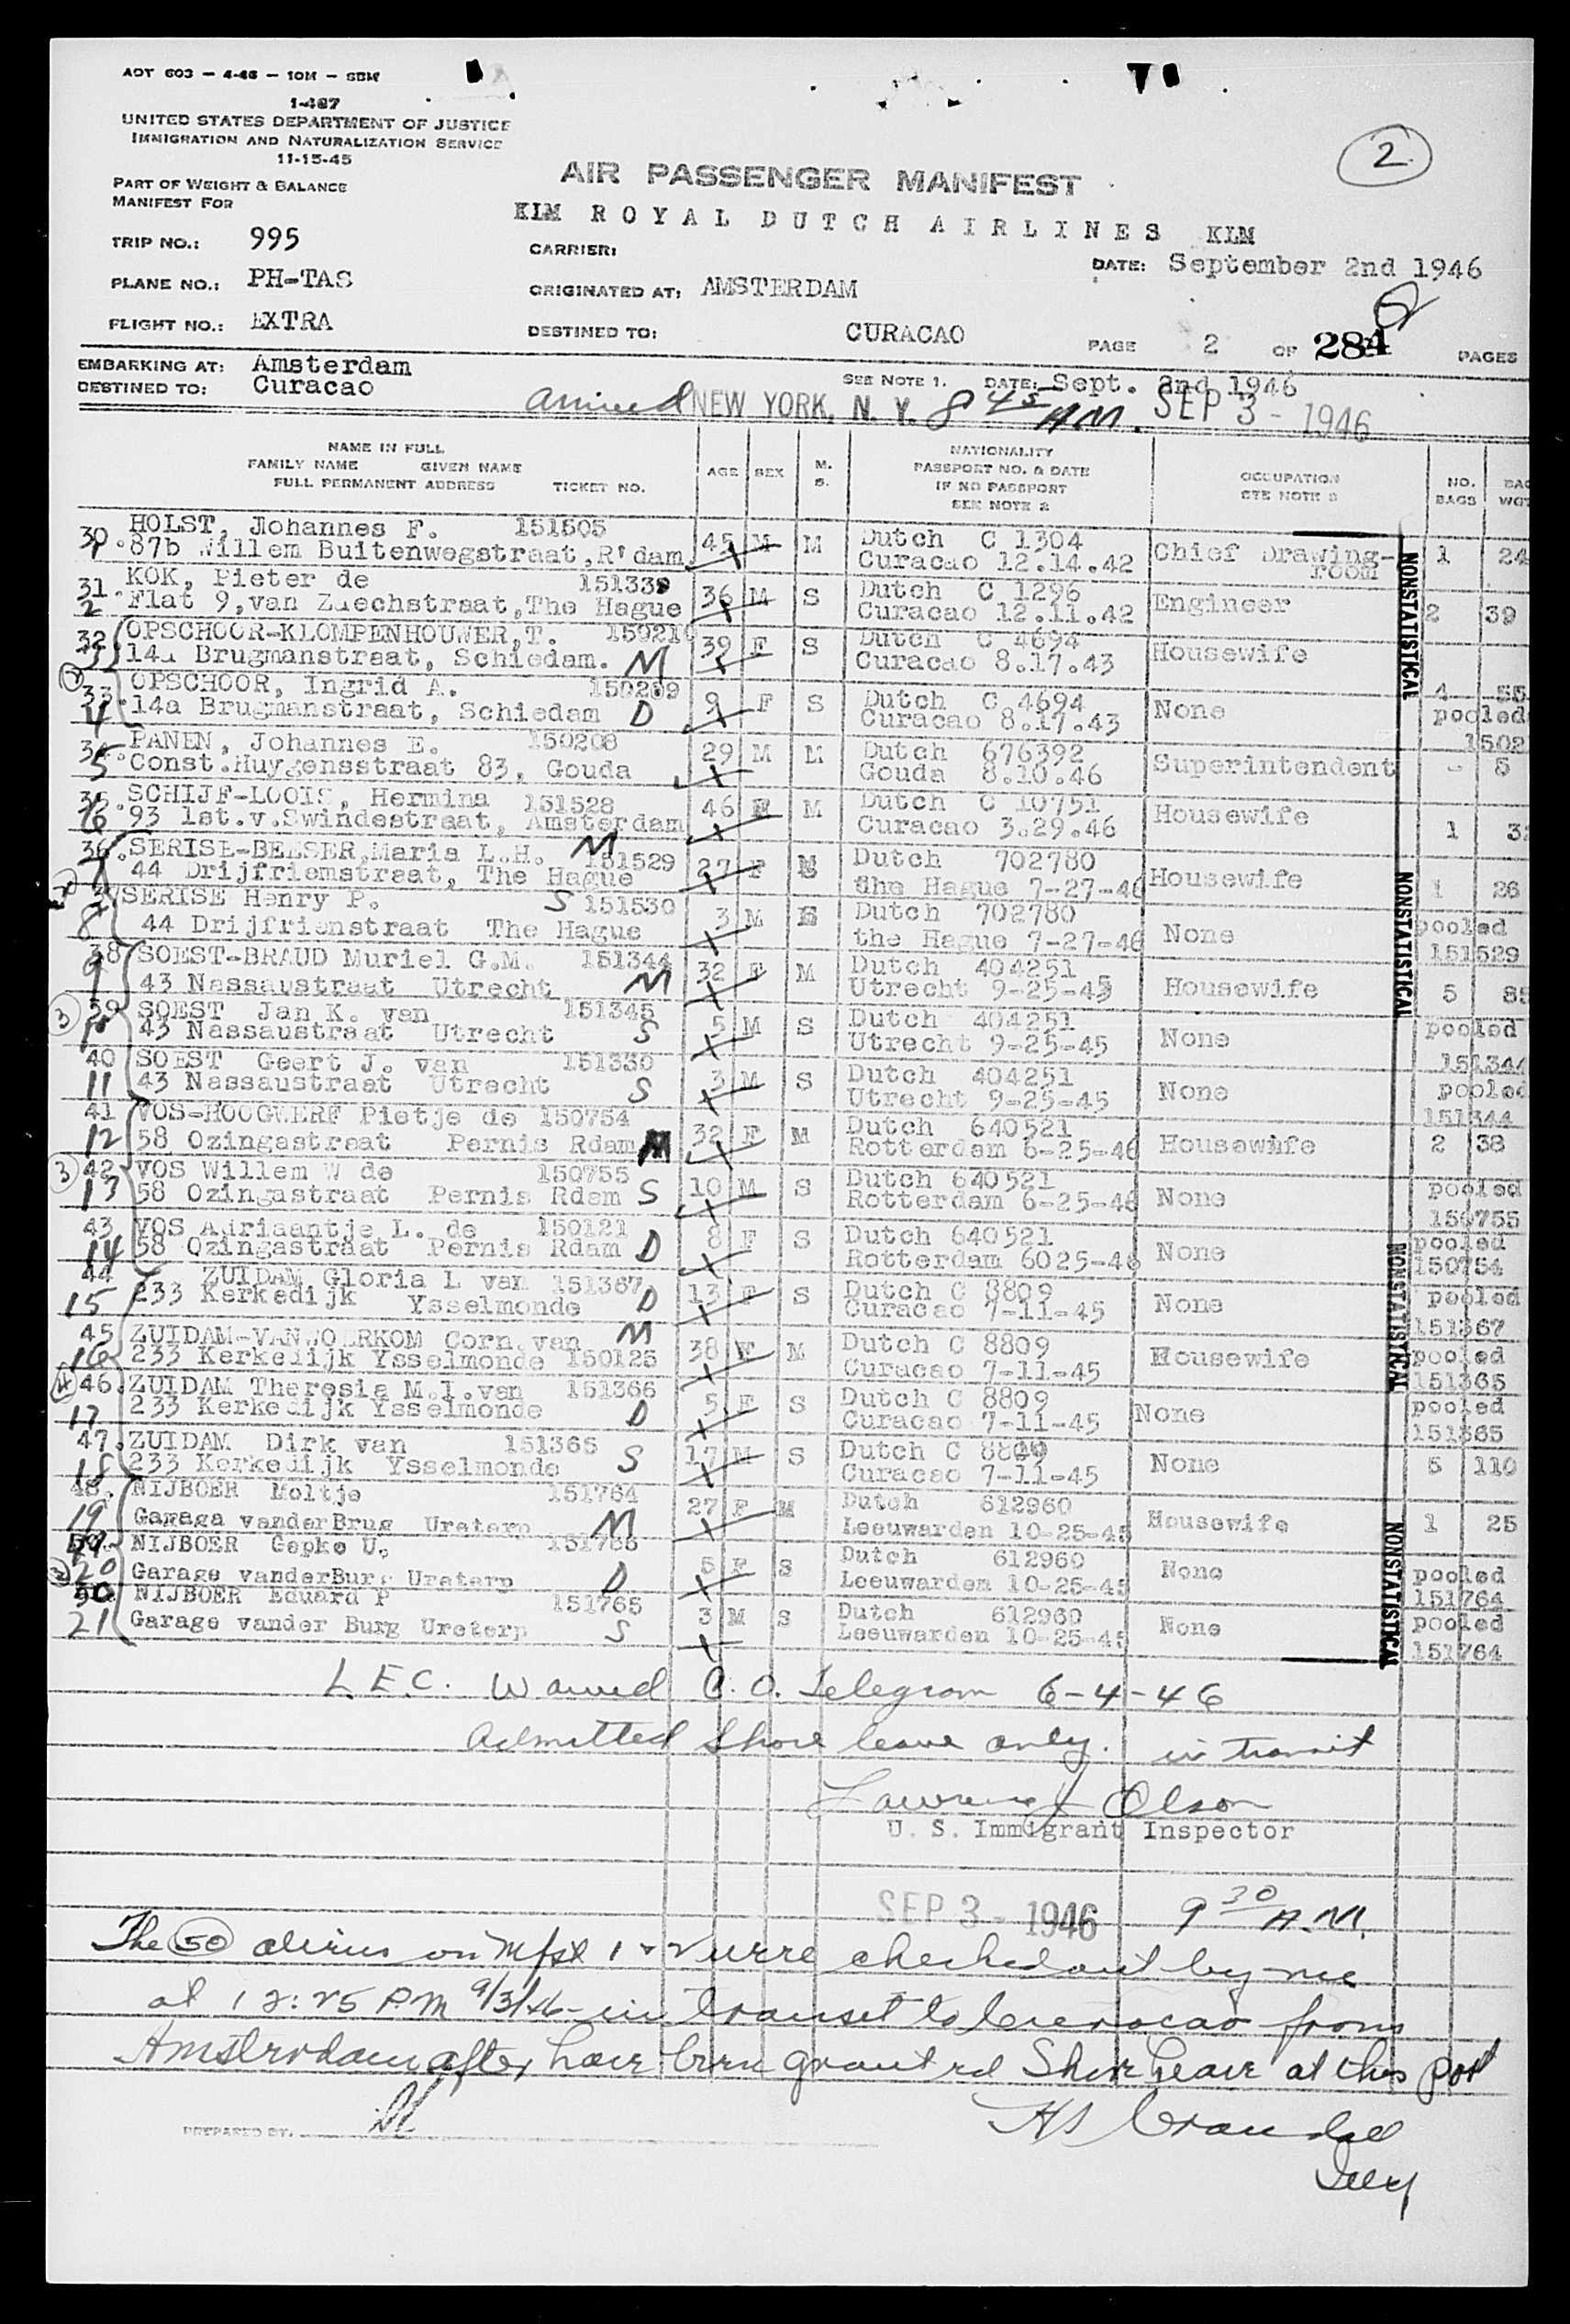 ADT 603 — 4-46 — 10M — SBM
1-487
UNITED STATES DEPARTMENT OF JUSTICE
IMMIGRATION AND NATURALIZATION SERVICE
11-15-45
2
PART OF WEIGHT & BALANCE
MANIFEST FOR
AIR PASSENGER MANIFEST
KLM ROYAL DUTCH AIRLINES KLM
TRIP NO.: 995 CARRIER: DATE: September 2nd 1946
PLANE NO.: PH-TAS ORIGINATED AT: AMSTERDAM
FLIGHT NO.: EXTRA DESTINED TO: CURACAO PAGE 2 OF 284 PAGES
EMBARKING AT: Amsterdam
DESTINED TO: Curacao SEE NOTE 1. DATE: Sept. 2nd 1946
arrived NEW YORK, N. Y. 8 45 AM. SEP 3 - 1946
NAME IN FULL
FAMILY NAME GIVEN NAME
FULL PERMANENT ADDRESS TICKET NO. AGE SEX M. S. NATIONALITY PASSPORT NO. & DATE IF NO PASSPORT SEE NOTE 2 OCCUPATION SEE NOTE 3 NO. BAGS BAG WGT
30. HOLST, Johannes F. 151505 45 M M Dutch C 1304 Chief Drawing- 1 24
1 87b Willem Buitenwegstraat, R'dam Curacao 12.14.42 room
31. KOK, Pieter de 151339 36 M S Dutch C 1296 Engineer 2 39
2 Flat 9, van Zuechstraat, The Hague Curacao 12.11.42
32 OPSCHOOR-KLOMPENHOUWER, T. 150210 39 F S Dutch C 4694 Housewife
3 14a Brugmanstraat, Schiedam. M Curacao 8.17.43
33 OPSCHOOR, Ingrid A. 150209 9 F S Dutch C 4694 None 4 55
4 14a Brugmanstraat, Schiedam D Curacao 8.17.43 pooled
34. PANEN, Johannes E. 150208 29 M M Dutch 676392 Superintendent - 5
5 Const. Huygensstraat 83, Gouda Gouda 8.10.46
35. SCHIJF-LOOIS, Hermina 151528 46 F M Dutch C 10751 Housewife 1
6 93 1st.v.Swindestraat, Amsterdam Curacao 3.29.46
36. SERISE-BEESER, Maria L.H. M 151529 27 F M Dutch 702780 Housewife 1 26
7 44 Drijfriemstraat, The Hague the Hague 7-27-46
37 SERISE Henry P. S 151530 3 M S Dutch 702780 None pooled
8 44 Drijfrienstraat The Hague the Hague 7-27-46 151529
38 SOEST-BRAUD Muriel G.M. 151344 32 F M Dutch 404251 Housewife 5 85
9 43 Nassaustraat Utrecht M Utrecht 9-25-45
3 39 SOEST Jan K. van 151345 5 M S Dutch 404251 None pooled
10 43 Nassaustraat Utrecht S Utrecht 9-25-45 151344
40 SOEST Geert J. van 151330 3 M S Dutch 404251 None pooled
11 43 Nassaustraat Utrecht S Utrecht 9-25-45 151344
41 VOS-HOOGWERF Pietje de 150754 32 F M Dutch 640521 Housewife 2 38
12 58 Ozingastraat Pernis Rdam M Rotterdam 6-25-46
3 42 VOS Willem W de 150755 10 M S Dutch 640521 None pooled
13 58 Ozingastraat Pernis Rdam S Rotterdam 6-25-46 150755
43 VOS Adriaantje L. de 150121 8 F S Dutch 640521 None pooled
14 58 Ozingastraat Pernis Rdam D Rotterdam 6025-46 150754
44 ZUIDAM Gloria L van 151367 13 F S Dutch C 8809 None pooled
15 233 Kerkedijk Ysselmonde D Curacao 7-11-45 151367
45 ZUIDAM-VAN Corn. van M 38 F M Dutch C 8809 Housewife pooled
16 233 Kerkedijk Ysselmonde 150125 Curacao 7-11-45 151365
4 46. ZUIDAM Theresia M.I. van 151366 5 F S Dutch C 8809 None pooled
17 233 Kerkedijk Ysselmonde D Curacao 7-11-45 151365
47. ZUIDAM Dirk van 151365 S 17 M S Dutch C 8809 None 5 110
18 233 Kerkedijk Ysselmonde Curacao 7-11-45
48. NIJBOER Moltje 151764 27 F M Dutch 612960 Housewife 1 25
19 Garaga vanderBrug Ureterp M Leeuwarden 10-25-45
49. NIJBOER Gepke U. 151766 5 F S Dutch 612960 None pooled
20 Garage vanderBurg Ureterp D Leeuwarden 10-25-45 151764
50 NIJBOER Eduard P 151765 3 M S Dutch 612960 None pooled
21 Garage vander Burg Ureterp S Leeuwarden 10-25-45 151764
NONSTATISTICAL
NONSTATISTICAL
NONSTATISTICAL
NONSTATISTICAL
L.E.C. Waived C.O. Telegram 6-4-46
Admitted Shore leave only. in transit
Lawrence J Olson
U. S. Immigrant Inspector
SEP 3 - 1946 9 30 A.M.
The 50 aliens on Mfst 1 & 2 were checked out by me
at 12:25 PM 9/3/46 - in transet to Curacao from
Amsterdam after have been granted Shore leave at this port
HS Crandall
PREPARED BY.